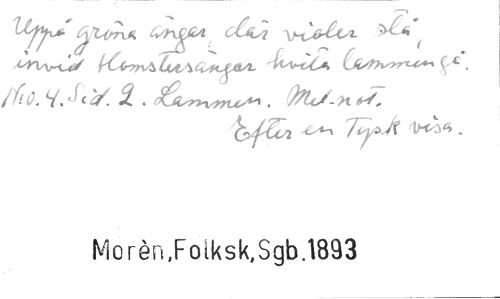 Uppå gröna ängar, där violer stå,
invid blomstersängar hvita lammen gå.
No. 4. Sid. 2. Lammen. Mel.-not.
Efter en Tysk visa.
Morèn,Folksk,Sgb.1893